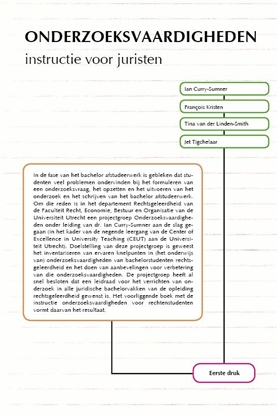 ONDERZOEKSVAARDIGHEDEN
instructie voor juristen
Ian Curry-Sumner
François Kristen
Tina van der Linden-Smith
Jet Tigchelaar
In de fase van het bachelor afstudeerwerk is gebleken dat stu-
denten veel problemen ondervinden bij het formuleren van
een onderzoeksvraag, het opzetten en het uitvoeren van het
onderzoek en het schrijven van het bachelor afstudeerwerk.
Om die reden is in het departement Rechtsgeleerdheid van
de Faculteit Recht, Economie, Bestuur en Organisatie van de
Universiteit Utrecht een projectgroep Onderzoeksvaardighe-
den onder leiding van dr. Ian Curry-Sumner aan de slag ge-
gaan (in het kader van de negende leergang van de Center of
Excellence in University Teaching (CEUT) aan de Universi-
teit Utrecht). Doelstelling van deze projectgroep is geweest
het inventariseren van ervaren knelpunten in (het onderwijs
van) onderzoeksvaardigheden van bachelorstudenten rechts-
geleerdheid en het doen van aanbevelingen voor verbetering
van die onderzoeksvaardigheden. De projectgroep heeft al
snel besloten dat een leidraad voor het verrichten van on-
derzoek in alle juridische bachelorvakken van de opleiding
rechtsgeleerdheid gewenst is. Het voorliggende boek met de
instructie onderzoeksvaardigheden voor rechtenstudenten
vormt daarvan het resultaat.
Eerste druk